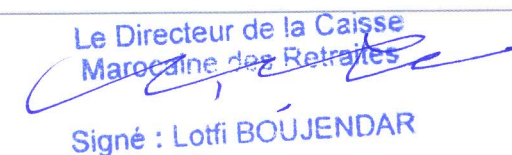 Le Directeur de la Caisse
Marocaine des Retraites
Signé : Lotfi BOUJENDAR